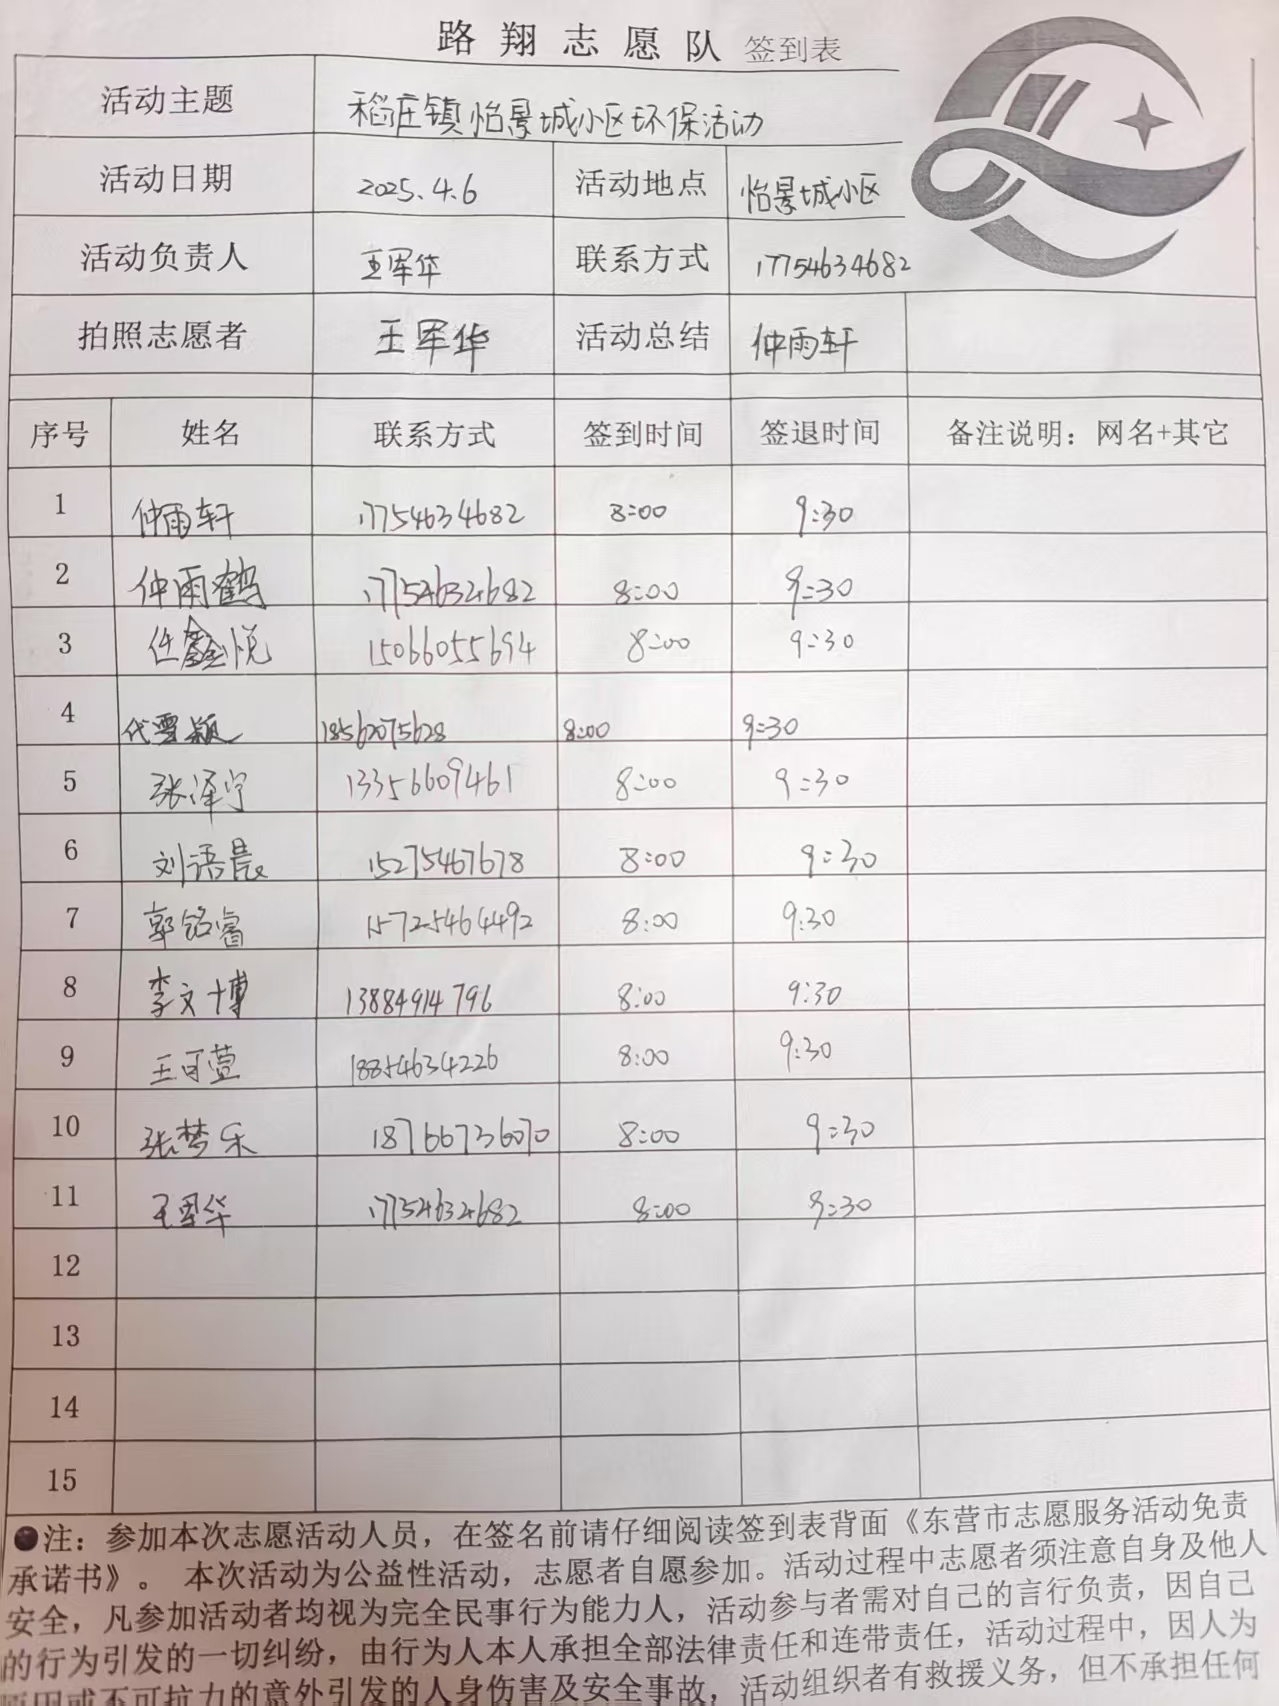 路翔志愿队 签到表
活动主题 稻庄镇怡景城小区环保活动
活动日期 2025.4.6 活动地点 怡景城小区
活动负责人 王军华 联系方式 17754634682
拍照志愿者 王军华 活动总结 仲雨轩
序号 姓名 联系方式 签到时间 签退时间 备注说明：网名+其它
1 仲雨轩 17754634682 8:00 9:30
2 仲雨鹤 17754634682 8:00 9:30
3 任鑫悦 15066055694 8:00 9:30
4 代雪颖 18562075628 8:00 9:30
5 张泽宁 13356609461 8:00 9:30
6 刘语晨 15275467678 8:00 9:30
7 郭铭睿 15725464492 8:00 9:30
8 李文博 13884914796 8:00 9:30
9 王可萱 18854634226 8:00 9:30
10 张梦乐 18766736070 8:00 9:30
11 王军华 17754634682 8:00 9:30
12
13
14
15
●注：参加本次志愿活动人员，在签名前请仔细阅读签到表背面《东营市志愿服务活动免责
承诺书》。 本次活动为公益性活动，志愿者自愿参加。活动过程中志愿者须注意自身及他人
安全，凡参加活动者均视为完全民事行为能力人，活动参与者需对自己的言行负责，因自己
的行为引发的一切纠纷，由行为人本人承担全部法律责任和连带责任，活动过程中，因人为
原因或不可抗力的意外引发的人身伤害及安全事故，活动组织者有救援义务，但不承担任何